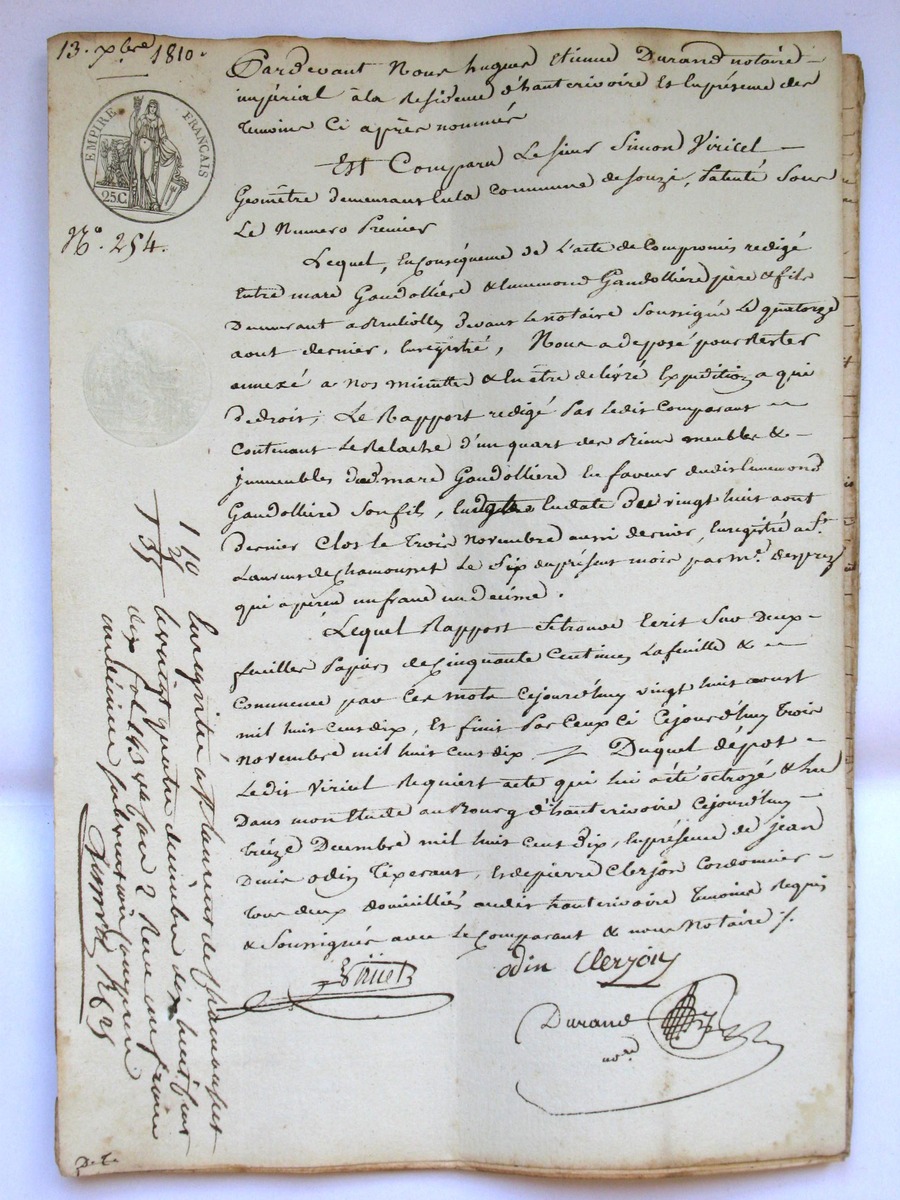 13. xbre 1810.
EMPIRE FRANÇAIS
25C
N.o 254.
Pardevant Nous hugues Etienne Durand notaire
impérial à la Residence d'hauterivoire Et En présence des
temoins Ci après nommés
Est Comparu Le sieur Simon Viricel
Geomètre demeurant En la Commune de souzi, Patenté sous
Le Numero Premier
Lequel, En Conséquence de L'acte de Compromis redigé
Entre marc Gaudollière & Ennemond Gaudollière père & fils
Demeurant a Brulioles devant le notaire soussigné Le quatorze
aout dernier, Enregistré, Nous a déposé pour Rester
annexé a nos minuttes & En être delivré Expedition a qui
de droit; Le Rapport redigé Par ledit Comparant
Contenant Le Relache d'un quart des Biens meubles &
Immeubles dud. marc Gaudollière En faveur dudit Ennemond
Gaudollière son fils, En date du vingt huit aout
dernier Clos le Trois Novembre aussi dernier, Enregistré a St.
Laurent de Chamousset Le Six du présent mois par mr. desprez
qui a perçu un franc un decime.
Lequel Rapport se trouve Ecrit Sur Deux
feuilles Papier de Cinquante Centimes La feuille &
Commence par Ces mots Cejourd'huy vingt huit aoust
mil huit Cent dix, Et finit Par Ceux Ci Cejourd'huy Trois
Novembre mil huit Cent dix. Duquel dépot
Ledit Viricel Requiert acte qui lui a été octroyé & lu
Dans mon Etude au Bourg d'hauterivoire Cejourd'huy
treize Decembre mil huit Cent Dix, En présence de jean
Denis odin Tixerant, Et de pierre Clerjon Cordonnier
Tous deux Domiciliés audit hauterivoire Temoins Requis
& Soussignés avec Le Comparant & nous Notaire ./.
Viricel
odin Clerjon
Durand
no.re
Enregistré a St Laurent de chamousset
le vingt quatre decembre dix huit cent
dix fol. 43 Ro Case 2 Reçu un franc
un décime
1 10
25
1 35